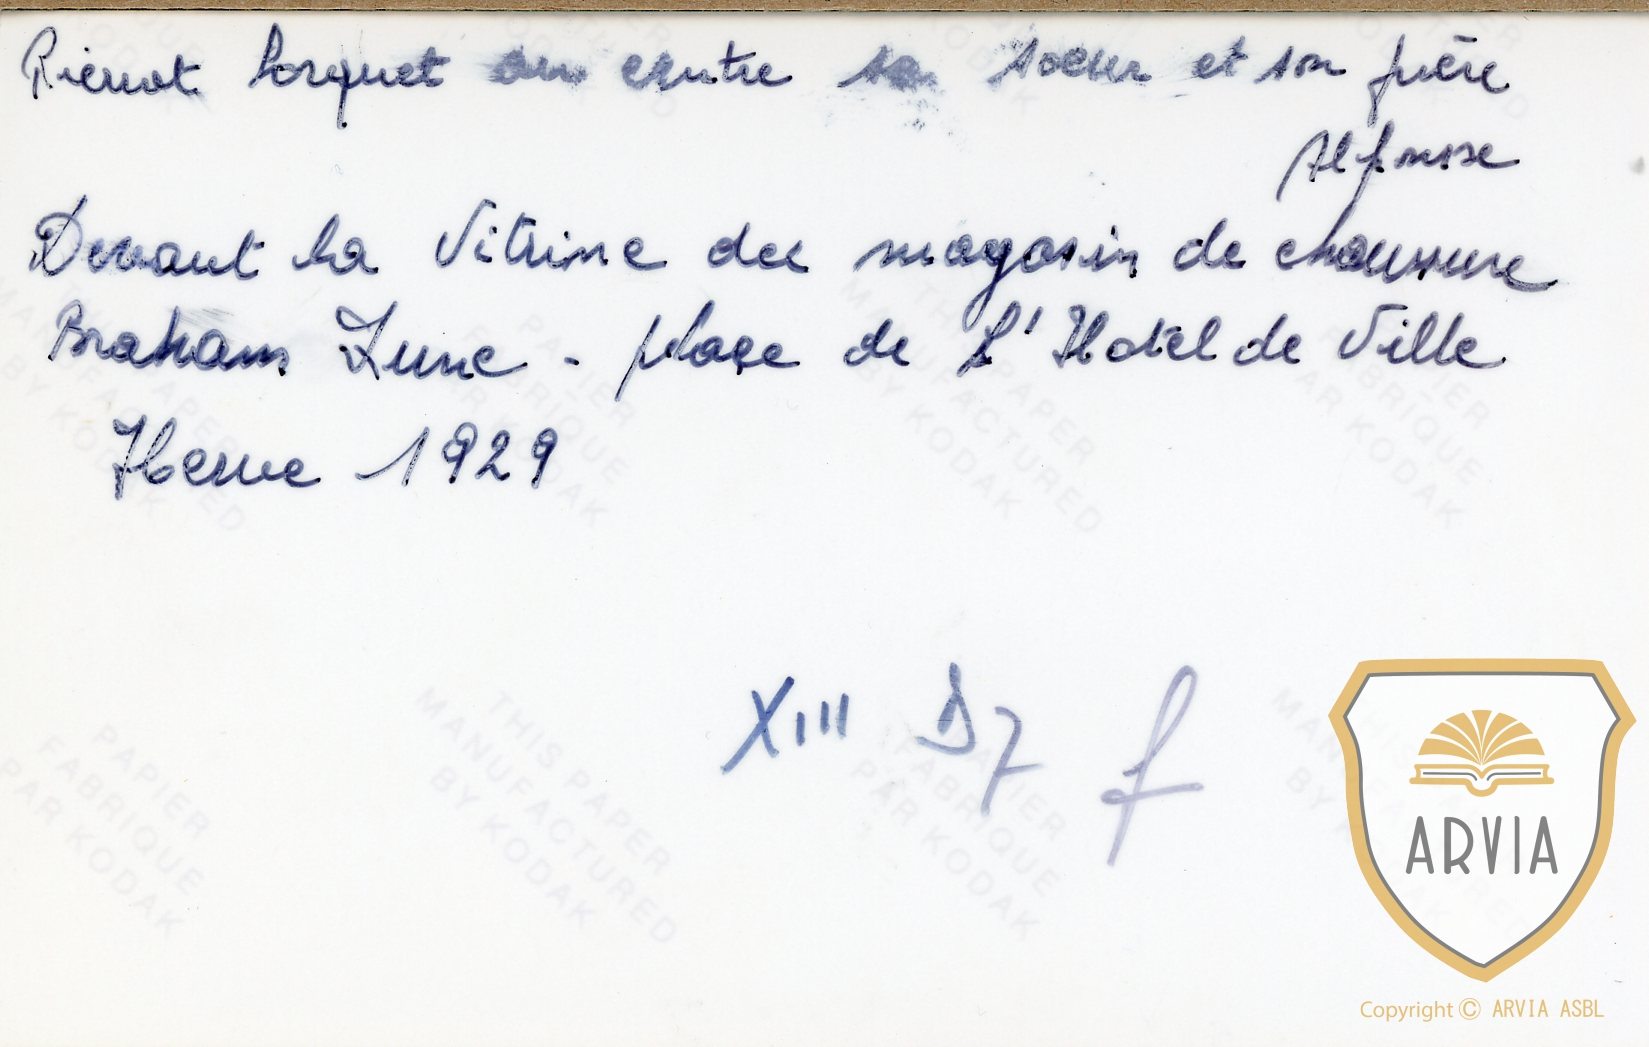 Pierrot Lorquet au centre sa soeur et son frère
Alphonse
Devant la Vitrine du magasin de chaussure
Braham Lune - place de L'Hotel de Ville
Herve 1929
XIII D7 f
ARVIA
Copyright © ARVIA ASBL
THIS PAPER
MANUFACTURED
BY KODAK
PAPIER
FABRIQUE
PAR KODAK